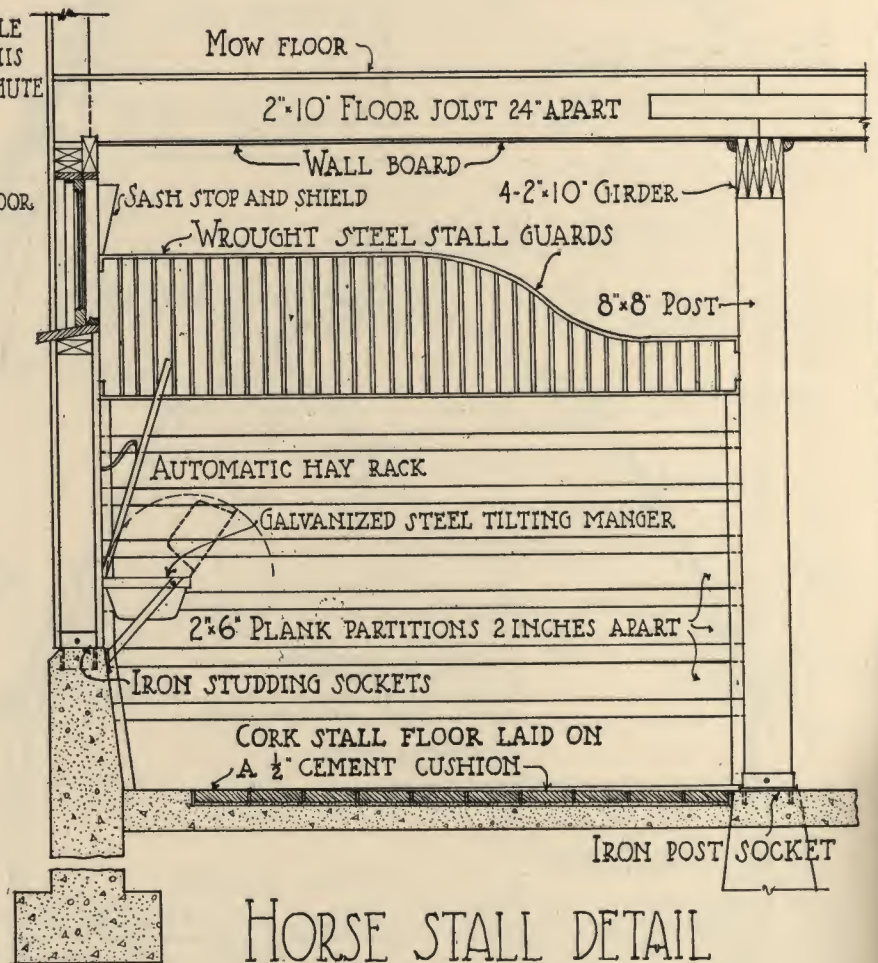 LE
HIS
HUTE
OOR
MOW FLOOR
2"×10" FLOOR JOIST 24" APART
WALL BOARD
4-2"×10" GIRDER
SASH STOP AND SHIELD
WROUGHT STEEL STALL GUARDS
8"×8" POST
AUTOMATIC HAY RACK
GALVANIZED STEEL TILTING MANGER
2"×6" PLANK PARTITIONS 2 INCHES APART
IRON STUDDING SOCKETS
CORK STALL FLOOR LAID ON
A ½" CEMENT CUSHION
IRON POST SOCKET
HORSE STALL DETAIL